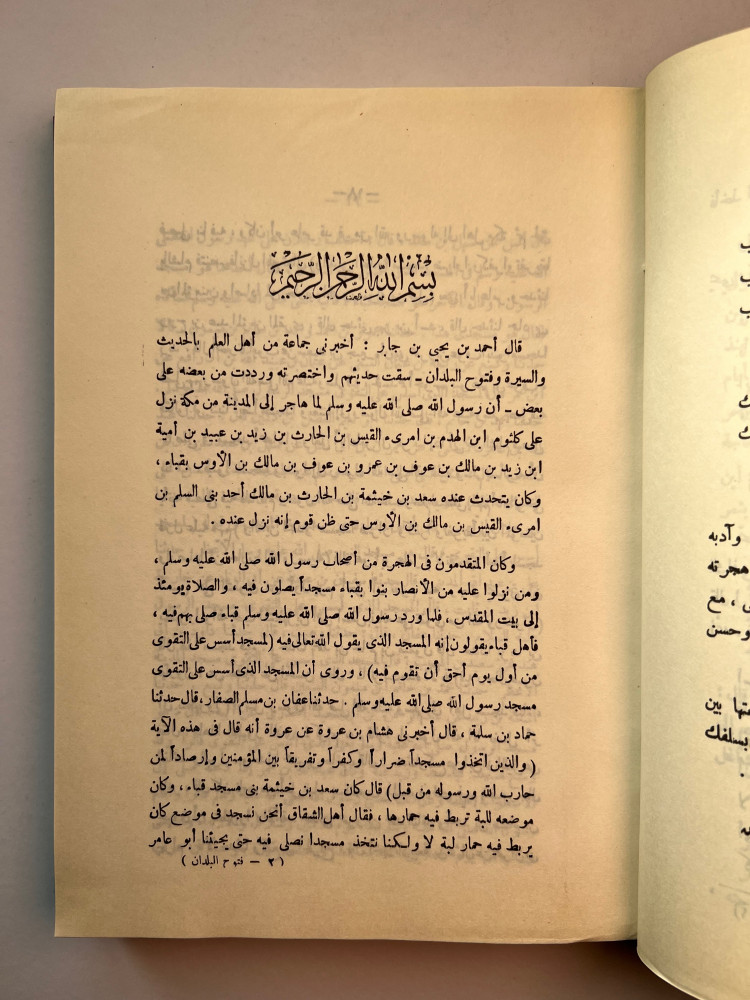 بسم الله الرحمن الرحيم
قال أحمد بن يحيي بن جابر : أخبرنى جماعة من أهل العلم بالحديث
والسيرة وفتوح البلدان ــ سقت حديثهم واختصرته ورددت من بعضه على
بعض ــ أن رسول الله صلى الله عليه وسلم لما هاجر إلى المدينة من مكة نزل
على كلثوم ابن الهدم بن امرىء القيس بن الحارث بن زيد بن عبيد بن أمية
ابن زيد بن مالك بن عوف بن عمرو بن عوف بن مالك بن الأوس بقباء ،
وكان يتحدث عنده سعد بن خيثمة بن الحارث بن مالك أحد بنى السلم بن
امرىء القيس بن مالك بن الأوس حتى ظن قوم إنه نزل عنده .
وكان المتقدمون فى الهجرة من أصحاب رسول الله صلى الله عليه وسلم ،
ومن نزلوا عليه من الأنصار بنوا بقباء مسجداً يصلون فيه ، والصلاة يومئذ
إلى بيت المقدس ، فلما ورد رسول الله صلى الله عليه وسلم قباء صلى بهم فيه ،
فأهل قباء يقولون إنه المسجد الذى يقول الله تعالى فيه (لمسجد أسس على التقوى
من أول يوم أحق أن تقوم فيه) ، وروى أن المسجد الذى أسس على التقوى
مسجد رسول الله صلى الله عليه وسلم . حدثنا عفان بن مسلم الصفار، قال حدثنا
حماد بن سلمة ، قال أخبرنى هشام بن عروة عن عروة أنه قال فى هذه الآية
( والذين اتخذوا مسجداً ضراراً وكفراً وتفريقاً بين المؤمنين وإرصاداً لمن
حارب الله ورسوله من قبل) قال كان سعد بن خيثمة بنى مسجد قباء ، وكان
موضعه للبة تربط فيه حمارها ، فقال أهل الشقاق أنحن نسجد فى موضع كان
يربط فيه حمار لبة لا ولكننا نتخذ مسجدا نصلى فيه حتى يجيئنا أبو عامر
( ٢ — فتوح البلدان )
وآدبه
هجرته
، مع
وحسن
بين
بسلفك